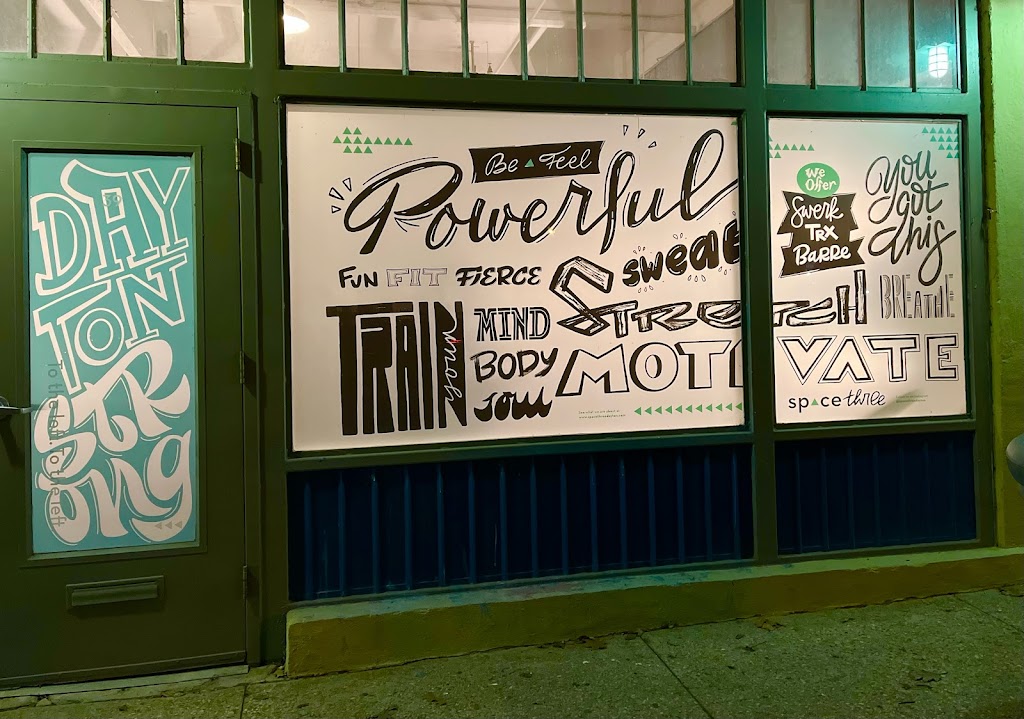 DAY
TON
STR
ONG
To the best. To the left
Be Feel
Powerful
FUN FIT FIERCE
sweat
TRAIN
yours
MIND
BODY
soul
Stretch
MOTIVATE
We
Offer
Swerk
TRX
BARRE
You
got
this
BREATHE
space three